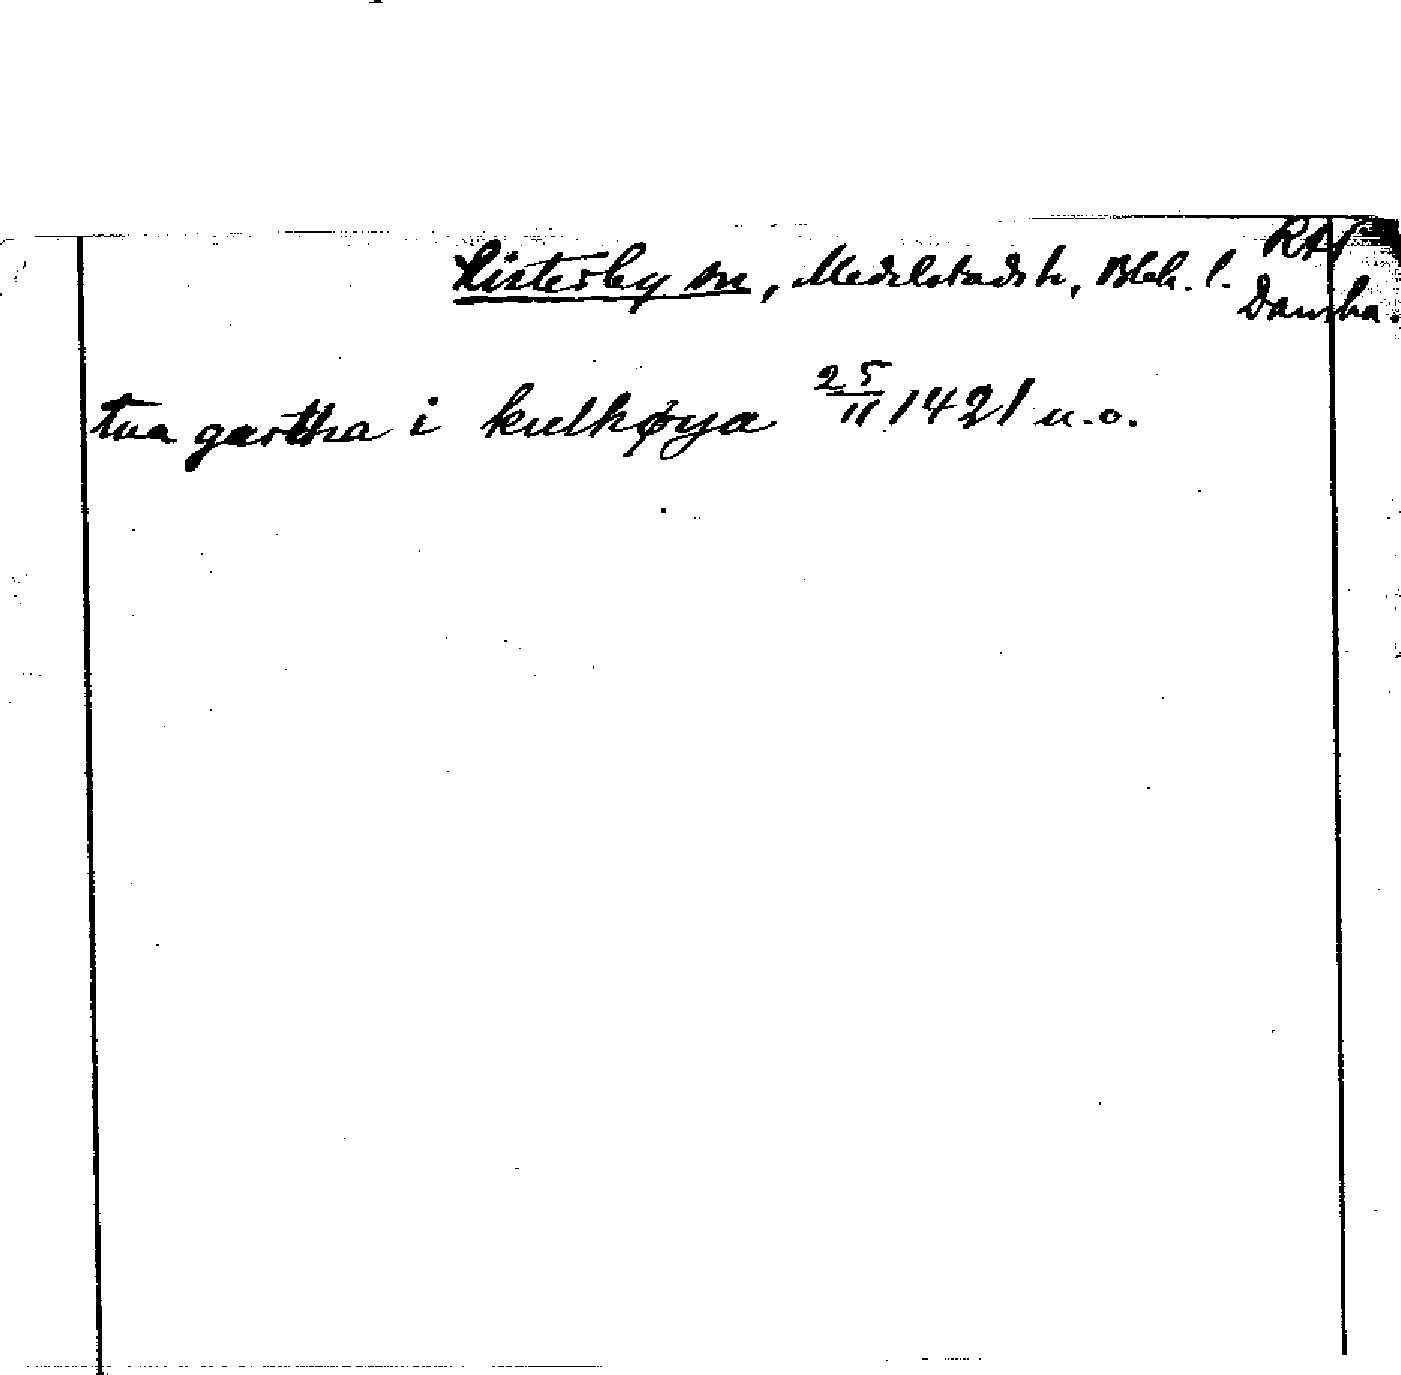 Listerby sn, Medelstads h, Blek. l. RA
Danska.
tua gartha i kulhøya 25/11 1421 u.o.